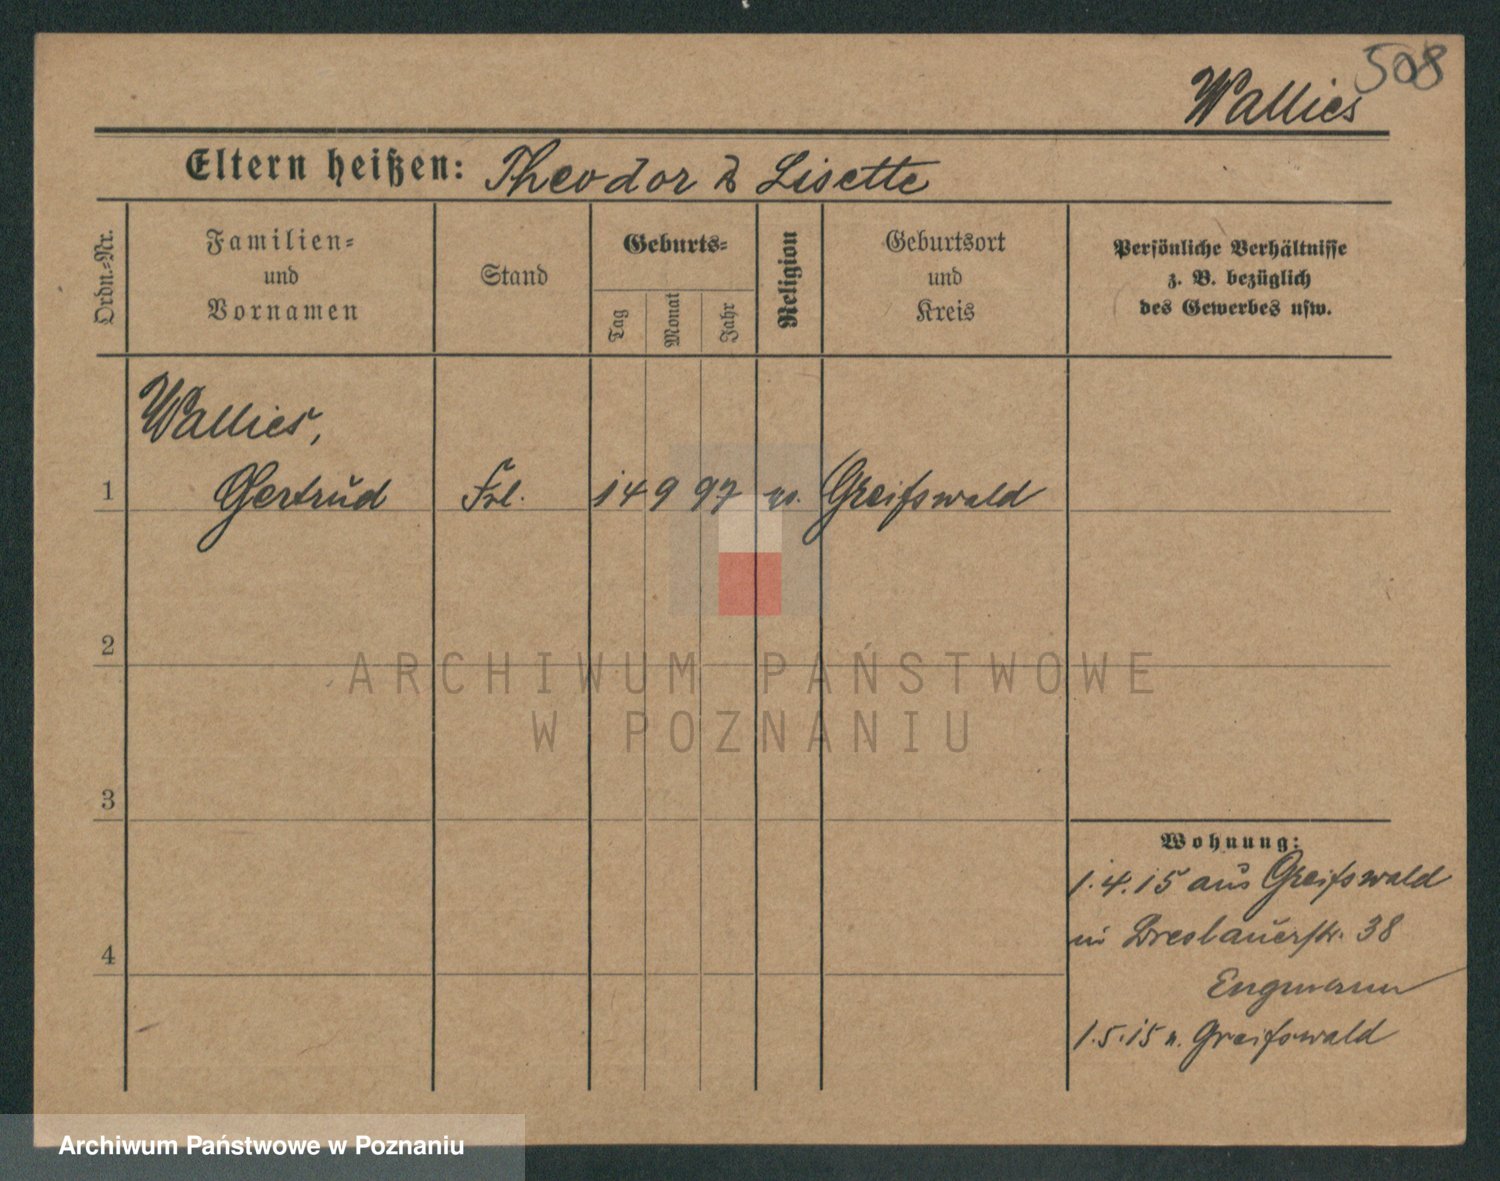 508
Wallies
Eltern heißen: Theodor & Lisette
Ordn.-Nr.
Familien-
und
Vornamen
Stand
Geburts-
Tag
Monat
Jahr
Religion
Geburtsort
und
Kreis
Persönliche Verhältnisse
z. B. bezüglich
des Gewerbes usw.
Wallies,
1 Gertrud Frl. 14 9 97 Greifswald
2
3
4
Wohnung:
1.4.15 aus Greifswald
in Breslauerstr. 38
Engmann
1.5.15 n. Greifswald
ARCHIWUM PAŃSTWOWE
W POZNANIU
Archiwum Państwowe w Poznaniu